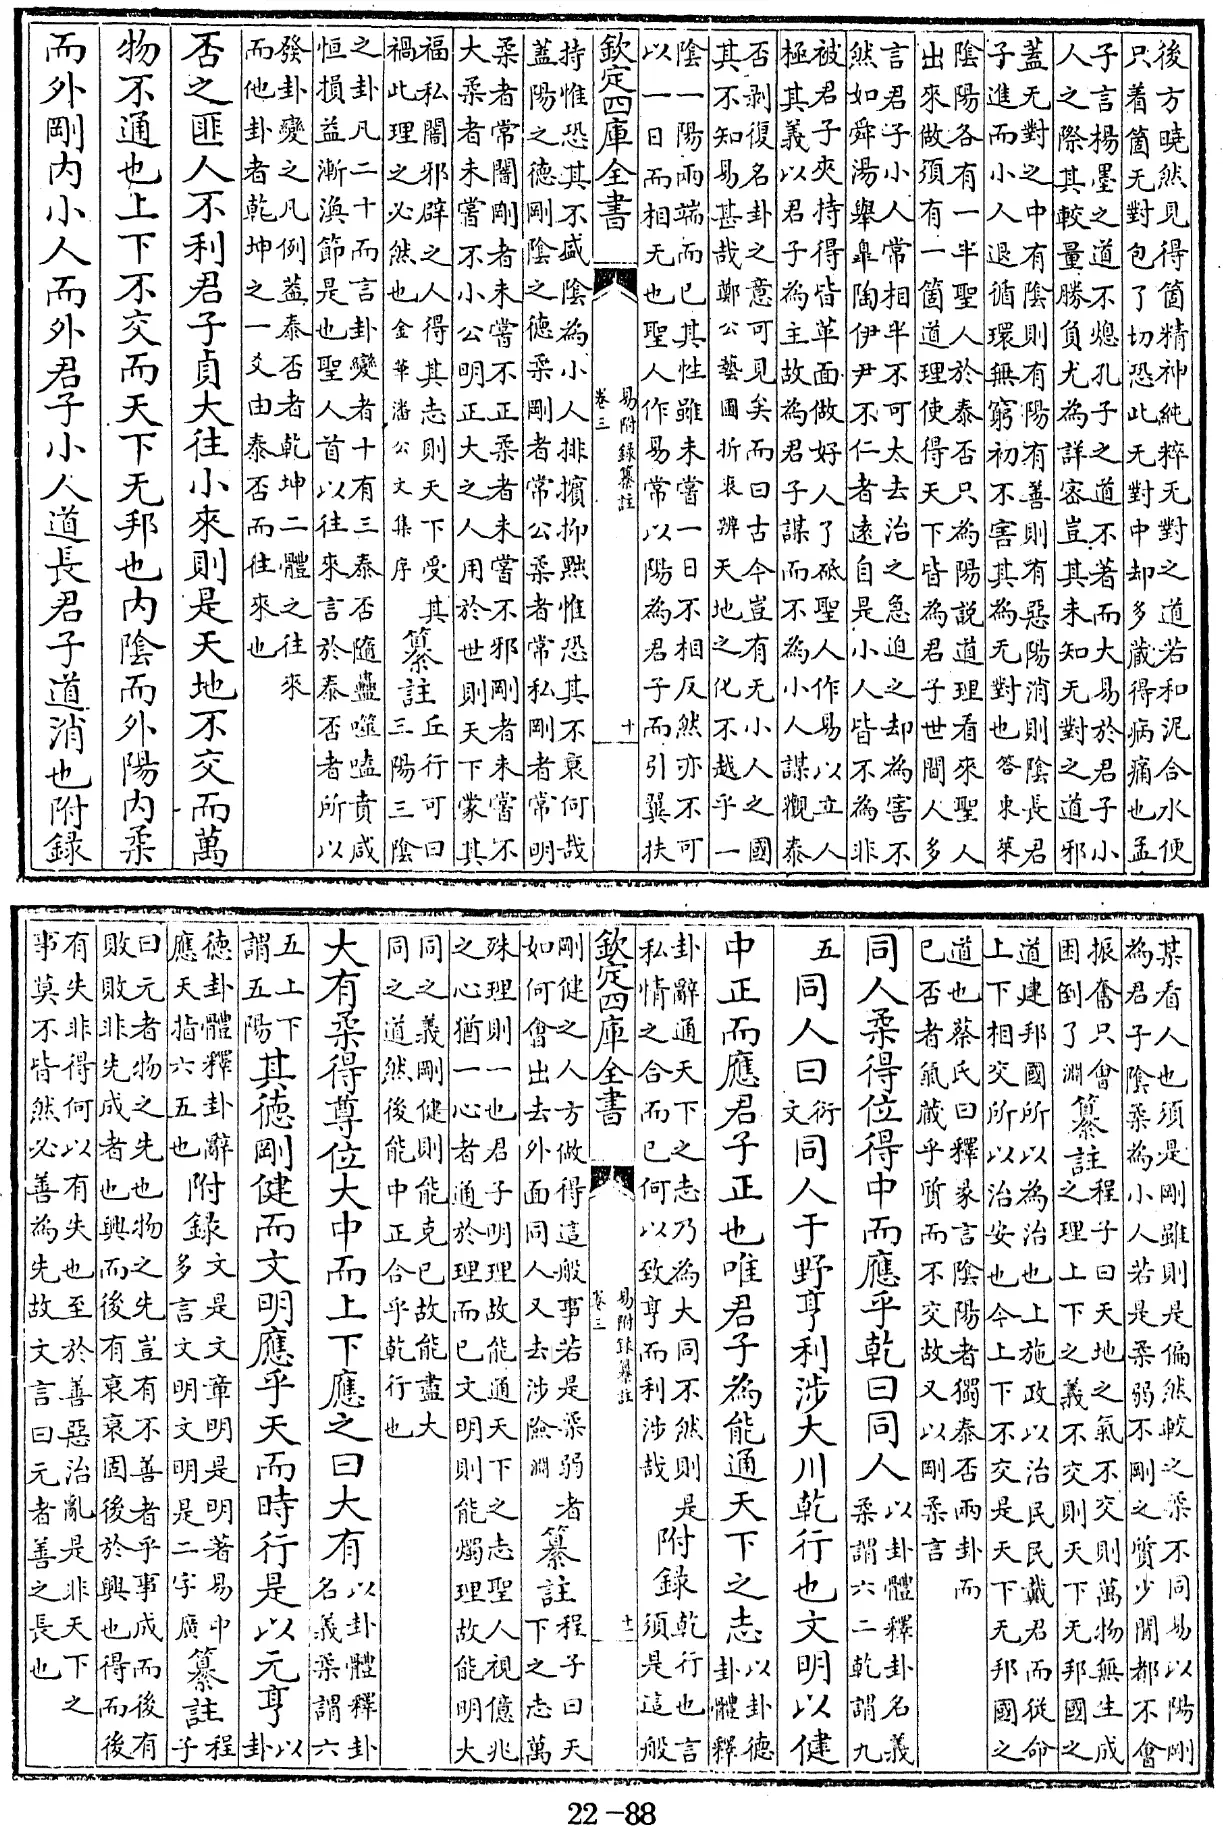 後方曉然見得箇精神純粹无對之道若和泥合水便
只着箇无對包了切恐此无對中却多蔵得病痛也孟
子言楊墨之道不熄孔子之道不著而大易於君子小
人之際其較量勝負尤為詳密豈其未知无對之道邪
蓋无對之中有陰則有陽有善則有惡陽消則陰長君
子進而小人退循環無窮初不害其為无對也答東萊
陰陽各有一半聖人於泰否只為陽説道理看來聖人
出來做須有一箇道理使得天下皆為君子世間人多
言君子小人常相半不可太去治之急迫之却為害不
然如舜湯舉臯陶伊尹不仁者遠自是小人皆不為非
被君子夾持得皆革面做好人了砥聖人作易以立人
極其義以君子為主故為君子謀而不為小人謀觀泰
否剥復名卦之意可見矣而曰古今豈有无小人之國
其不知易甚哉鄭公藝圃折衷辨天地之化不越乎一
陰一陽兩端而已其性雖未嘗一日不相反然亦不可
以一日而相无也聖人作易常以陽為君子而引翼扶
欽定四庫全書
易附録纂註
卷三
十
持惟恐其不盛陰為小人排擯抑黜惟恐其不衰何哉
蓋陽之德剛陰之德柔剛者常公柔者常私剛者常明
柔者常闇剛者未嘗不正柔者未嘗不邪剛者未嘗不
大柔者未嘗不小公明正大之人用於世則天下蒙其
福私闇邪辟之人得其志則天下受其
禍此理之必然也金華潘公文集序
纂註
丘行可曰
三陽三陰
之卦凡二十而言卦變者十有三泰否隨蠱噬嗑賁咸
恒損益漸渙節是也聖人首以往來言於泰否者所以
發卦變之凡例蓋泰否者乾坤二體之往來
而他卦者乾坤之一爻由泰否而往來也
否之匪人不利君子貞大往小來則是天地不交而萬
物不通也上下不交而天下无邦也内陰而外陽内柔
而外剛内小人而外君子小人道長君子道消也附録
某看人也須是剛雖則是偏然較之柔不同易以陽剛
為君子陰柔為小人若是柔弱不剛之質少間都不會
振奮只會
困倒了淵
纂註
程子曰天地之氣不交則萬物無生成
之理上下之義不交則天下无邦國之
道建邦國所以為治也上施政以治民民戴君而從命
上下相交所以治安也今上下不交是天下无邦國之
道也蔡氏曰釋彖言陰陽者獨泰否兩卦而
已否者氣蔵乎質而不交故又以剛柔言
同人柔得位得中而應乎乾曰同人
以卦體釋卦名義
柔謂六二乾謂九
五
同人曰
衍
文
同人于野亨利涉大川乾行也文明以健
中正而應君子正也唯君子為能通天下之志
以卦德
卦體釋
卦辭通天下之志乃為大同不然則是
私情之合而已何以致亨而利涉哉
附録
乾行也言
須是這般
欽定四庫全書
易附録纂註
卷三
十一
剛健之人方做得這般事若是柔弱者
如何會出去外面同人又去渉險淵
纂註
程子曰天
下之志萬
殊理則一也君子明理故能通天下之志聖人視億兆
之心猶一心者通於理而已文明則能燭理故能明大
同之義剛健則能克已故能盡大
同之道然後能中正合乎乾行也
大有柔得尊位大中而上下應之曰大有
以卦體釋卦
名義柔謂六
五上下
謂五陽
其德剛健而文明應乎天而時行是以元亨
以
卦
德卦體釋卦辭
應天指六五也
附録
文是文章明是明著易中
多言文明文明是二字廣
纂註
程
子
曰元者物之先也物之先豈有不善者乎事成而後有
敗敗非先成者也興而後有衰衰固後於興也得而後
有失非得何以有失也至於善惡治亂是非天下之
事莫不皆然必善為先故文言曰元者善之長也
22-88